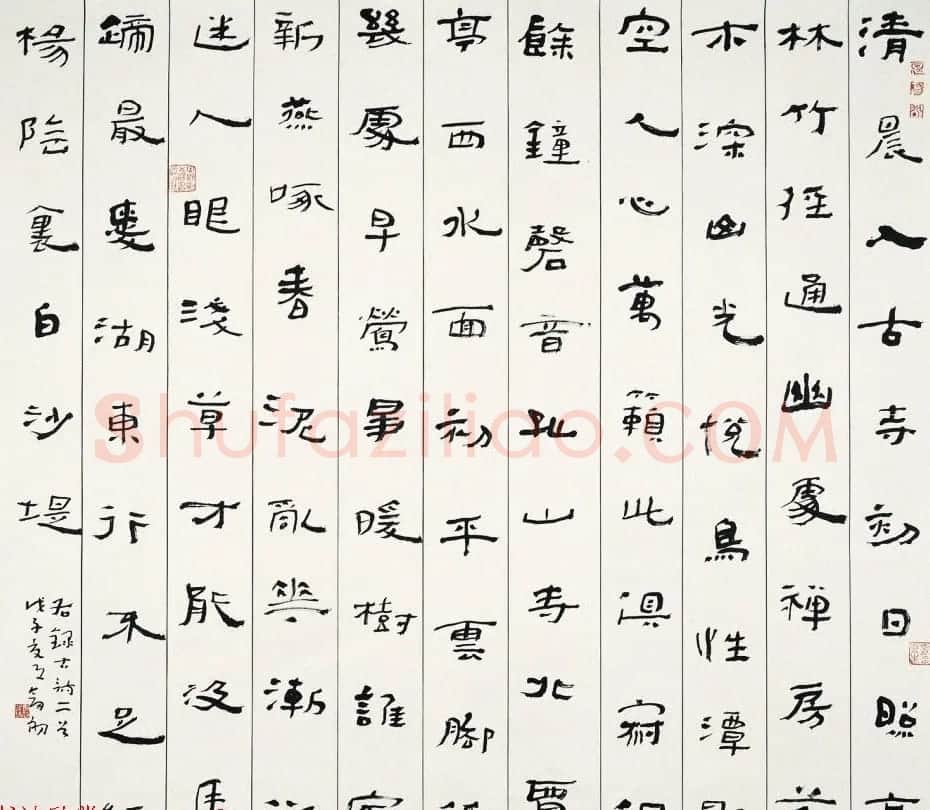 清晨入古寺初日照高
林竹徑通幽處禪房花
木深山光悅鳥性潭影
空人心萬籟此俱寂但
餘鐘磬音孤山寺北賈
亭西水面初平雲腳低
幾處早鶯爭暖樹誰家
新燕啄春泥亂花漸欲
迷人眼淺草才能沒馬
蹄最愛湖東行不足綠
楊陰裏白沙堤
右錄古詩二首
戊子夏月
Shufaziliao.COM